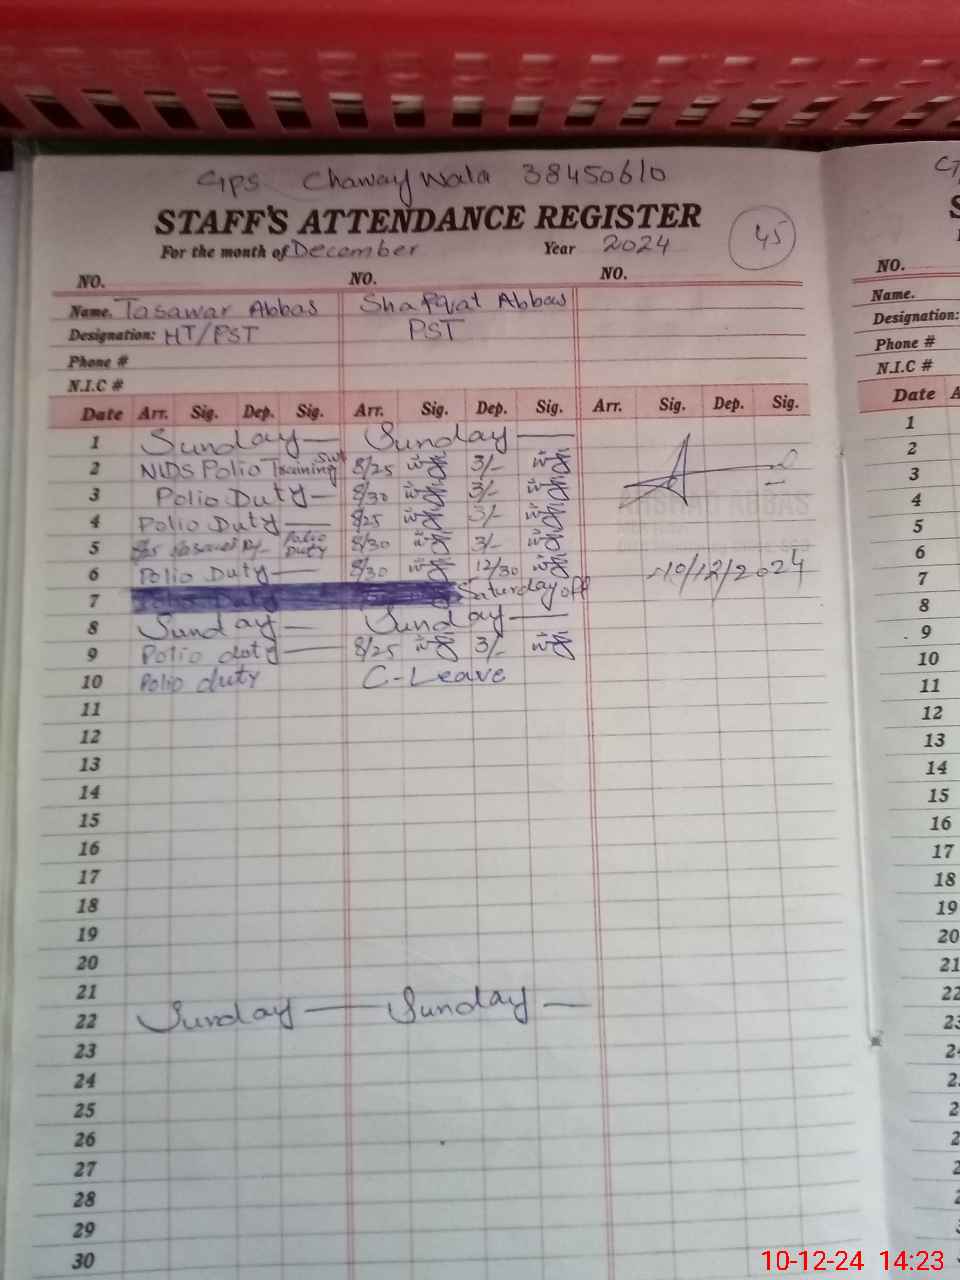 GPS Chaway Wala 38450610
STAFF'S ATTENDANCE REGISTER
For the month of December Year 2024
45
NO. NO. NO.
Name. Tasawar Abbas Shafqat Abbas
Designation: HT/PST PST
Phone #
N.I.C #
Date Arr. Sig. Dep. Sig. Arr. Sig. Dep. Sig. Arr. Sig. Dep. Sig.
1 Sunday Sunday
2 NIDS Polio Training 8/25 3/-
3 Polio Duty 8/30 3/-
4 Polio Duty 8/25 3/-
5 Polio Duty 8/30 3/-
6 Polio Duty 8/30 12/30
10/12/2024
7 Saturday off
8 Sunday Sunday
9 Polio duty 8/25 3/-
10 Polio duty C-Leave
11
12
13
14
15
16
17
18
19
20
21
22 Sunday Sunday
23
24
25
26
27
28
29
30
NO.
Name.
Designation:
Phone #
N.I.C #
Date
1
2
3
4
5
6
7
8
9
10
11
12
13
14
15
16
17
18
19
20
21
22
23
10-12-24 14:23